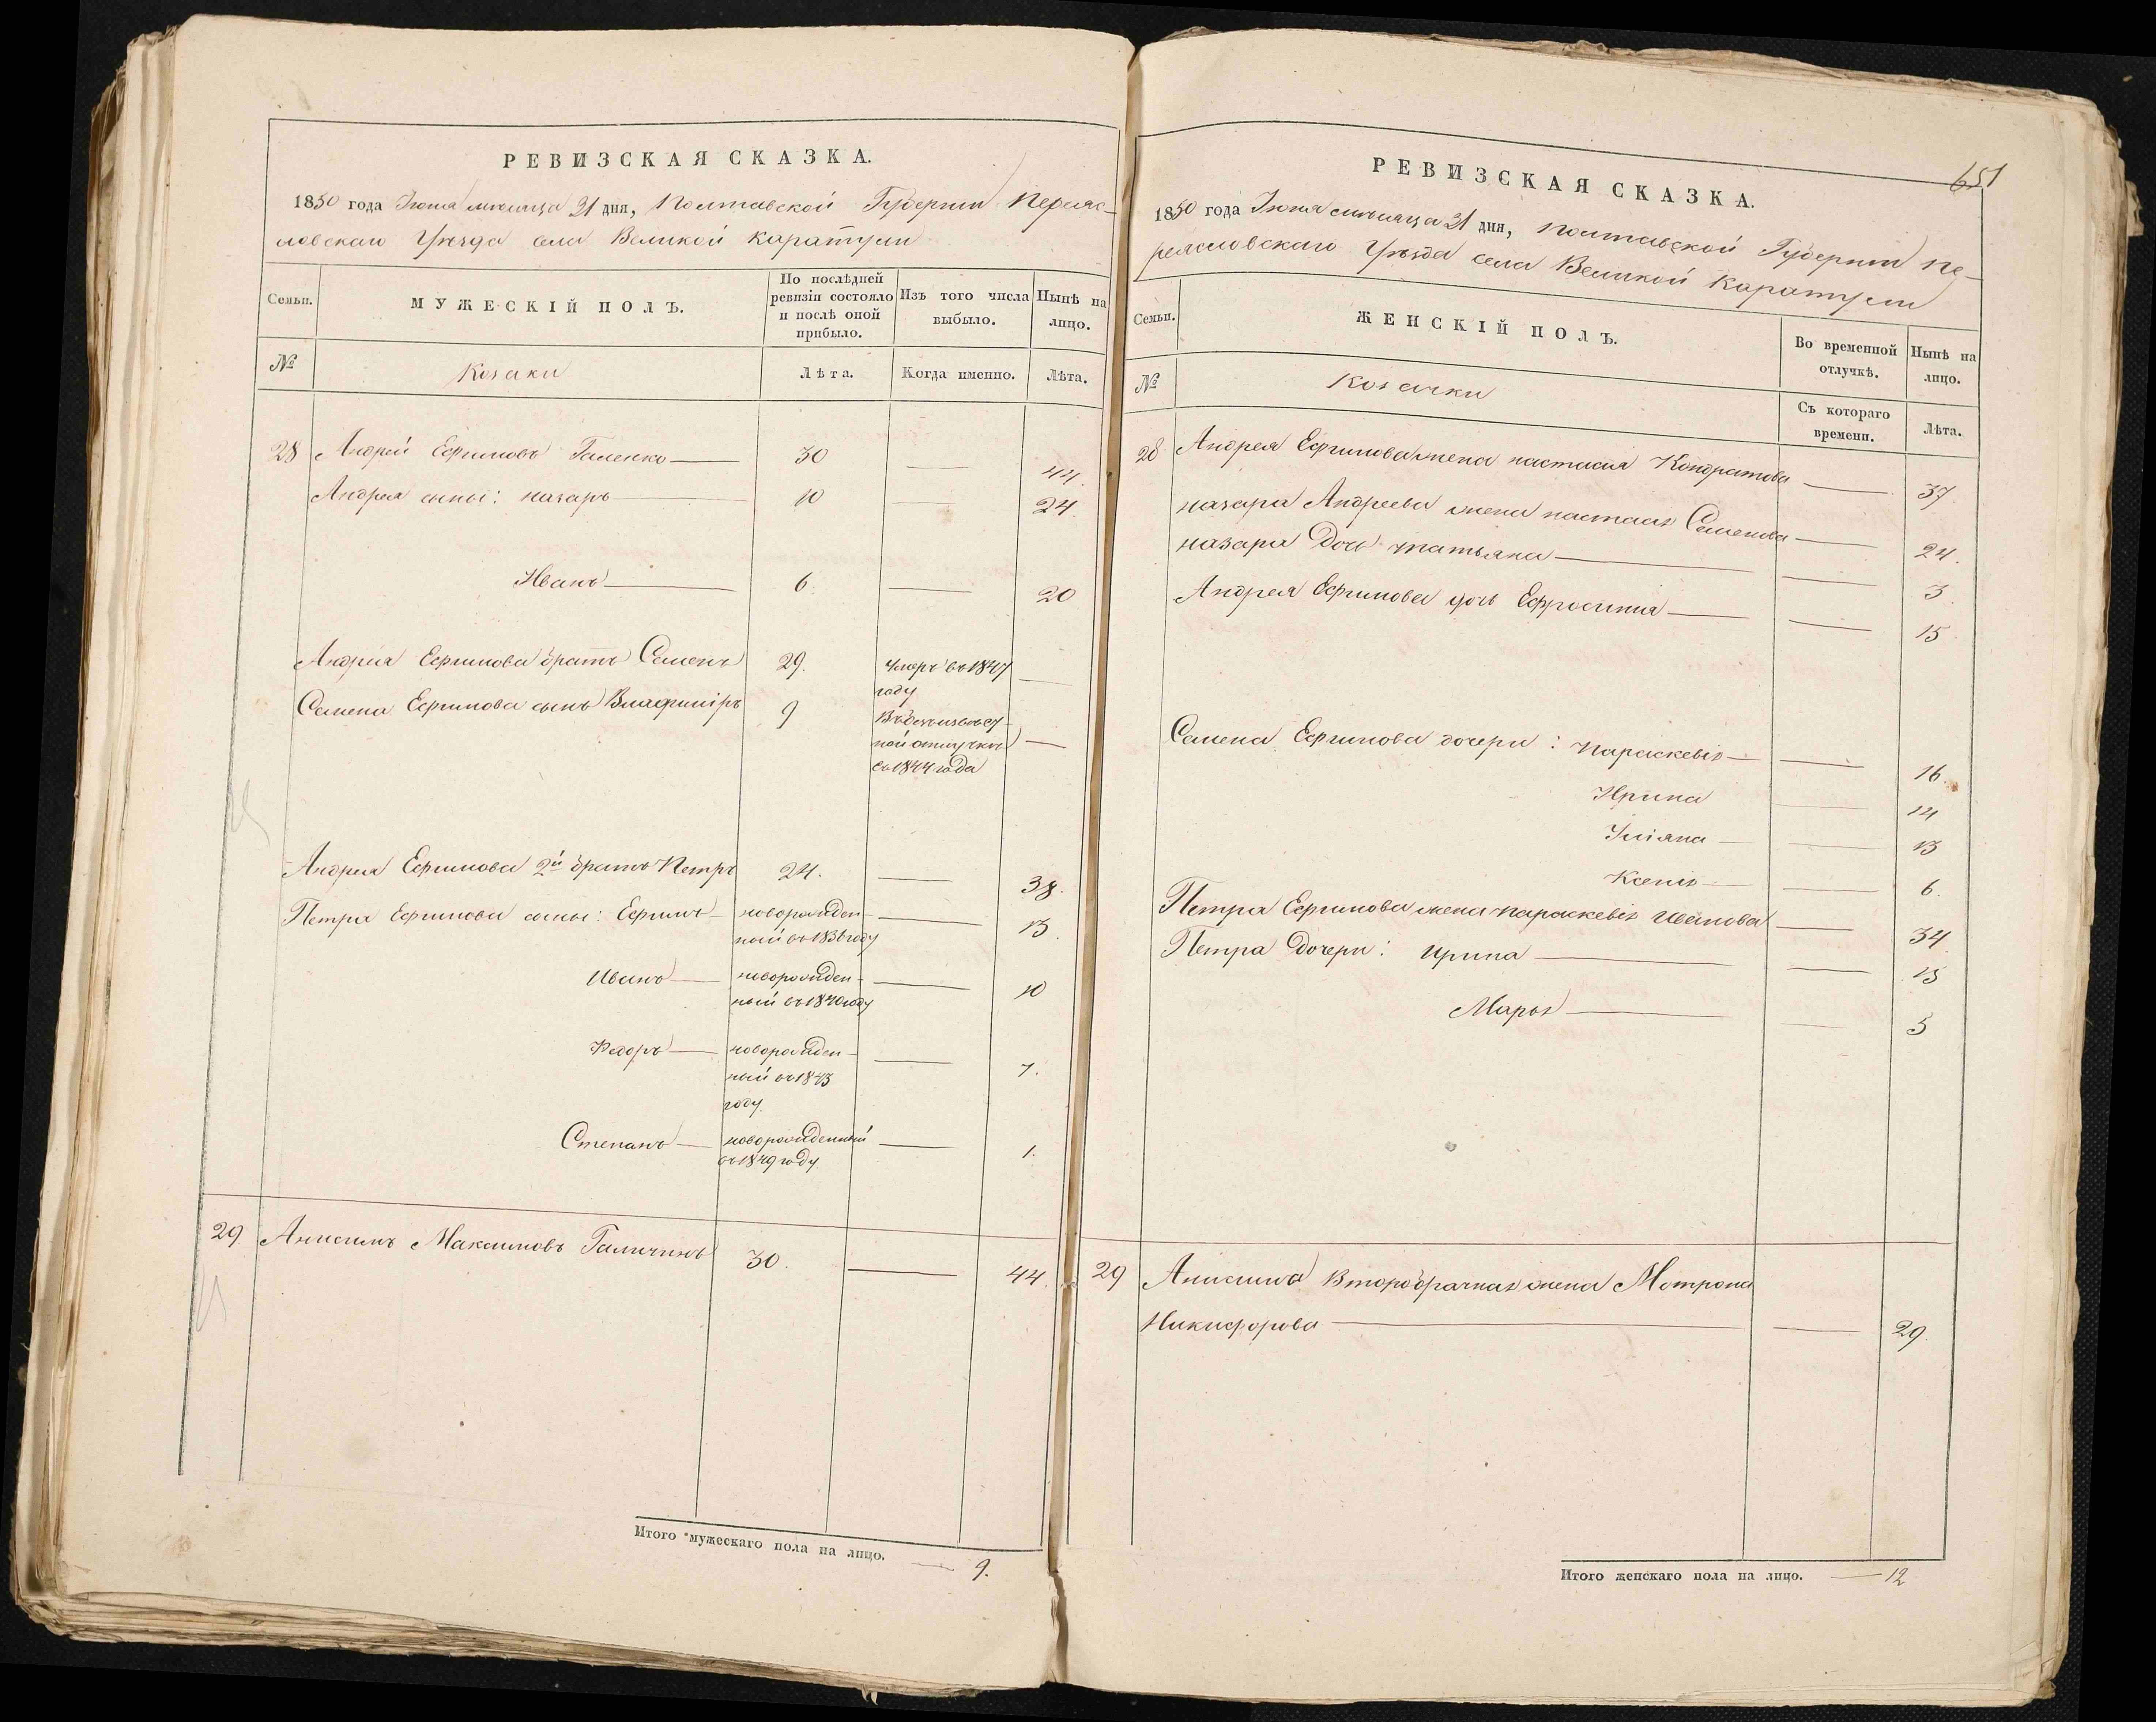 РЕВИЗСКАЯ СКАЗКА.
1850 года Июня месяца 21 дня, Полтавской Губернии Переяс-
ловскаго Уезда села Великой Каратули
Семьи. МУЖЕСКІЙ ПОЛЪ. По послѣдней ревизіи состояло и послѣ оной прибыло. Изъ того числа выбыло. Нынѣ на лицо.
№ Козаки Лѣта. Когда именно. Лѣта.
28 Андрей Ефимовъ Галенко 30 — 44.
Андрея сыны: Назаръ 10 — 24
Иванъ 6. — 20
Андрея Ефимова братъ Семенъ 29. умеръ въ 1847 году —
Семена Ефимова сынъ Владиміръ 9 Въ безъизвѣстной отлучкѣ съ 1844 года —
Андрея Ефимова 2й братъ Петръ 24. — 38.
Петра Ефимова сыны: Ефимъ новорожденный въ 1836 году — 13.
Иванъ новорожденный въ 1840 году — 10
Федоръ новорожденный въ 1843 году. — 7.
Степанъ новорожденный въ 1849 году — 1.
29 Анисимъ Максимовъ Галичинъ 30. — 44.
Итого мужескаго пола на лицо. — 9.
651
РЕВИЗСКАЯ СКАЗКА.
1850 года Июня месяца 21 дня, Полтавской Губернии Пе-
реясловскаго Уезда села Великой Каратули
Семьи. ЖЕНСКІЙ ПОЛЪ. Во временной отлучкѣ. Нынѣ на лицо.
№ Козачки Съ котораго времени. Лѣта.
28 Андрея Ефимова жена Настасия Кондратова — 37
Назара Андреева жена Настася Семенова — 24.
Назара дочь Татьяна — 3
Андрея Ефимова дочь Ефросиния — 15
Семена Ефимова дочери: Параскевія — 16.
Ирина — 14
Уліяна — 13
Ксенія — 6.
Петра Ефимова жена Параскевія Иванова — 34
Петра дочери: Ирина — 15
Марья — 5
29 Анисима второбрачная жена Мотрона
Никифорова — 29.
Итого женскаго пола на лицо. — 12